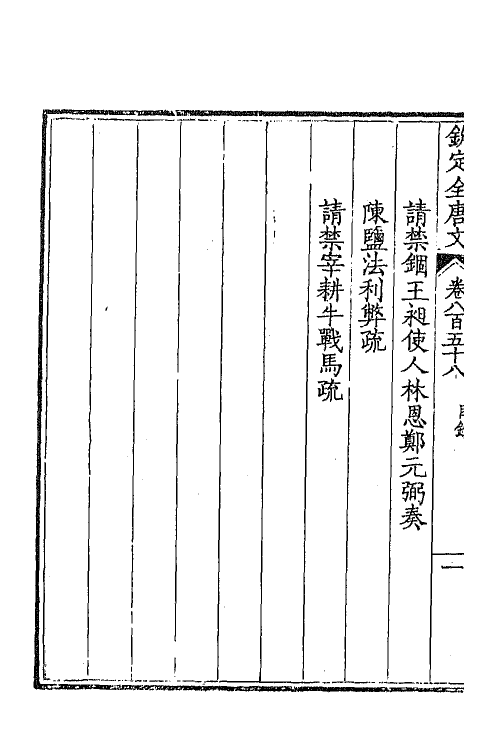 欽定全唐文 卷八百五十八 目錄 一
請禁錮王昶使人林恩鄭元弼奏
陳鹽法利弊疏
請禁宰耕牛戰馬疏